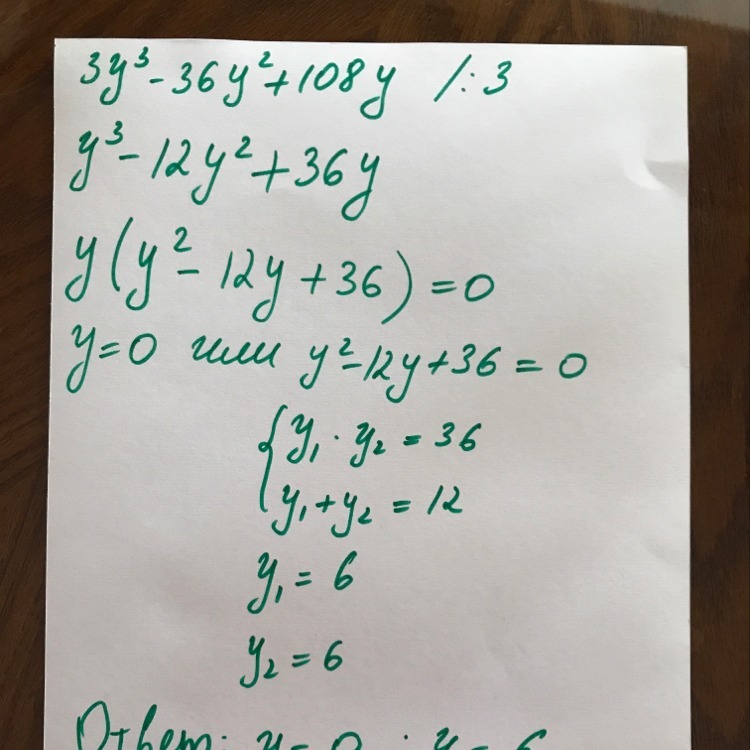 3y³ - 36y² + 108y /:3
y³ - 12y² + 36y
y(y² - 12y + 36) = 0
y = 0 или y² - 12y + 36 = 0
{ y₁ · y₂ = 36
y₁ + y₂ = 12
y₁ = 6
y₂ = 6
Ответ: y = 0 ; y = 6